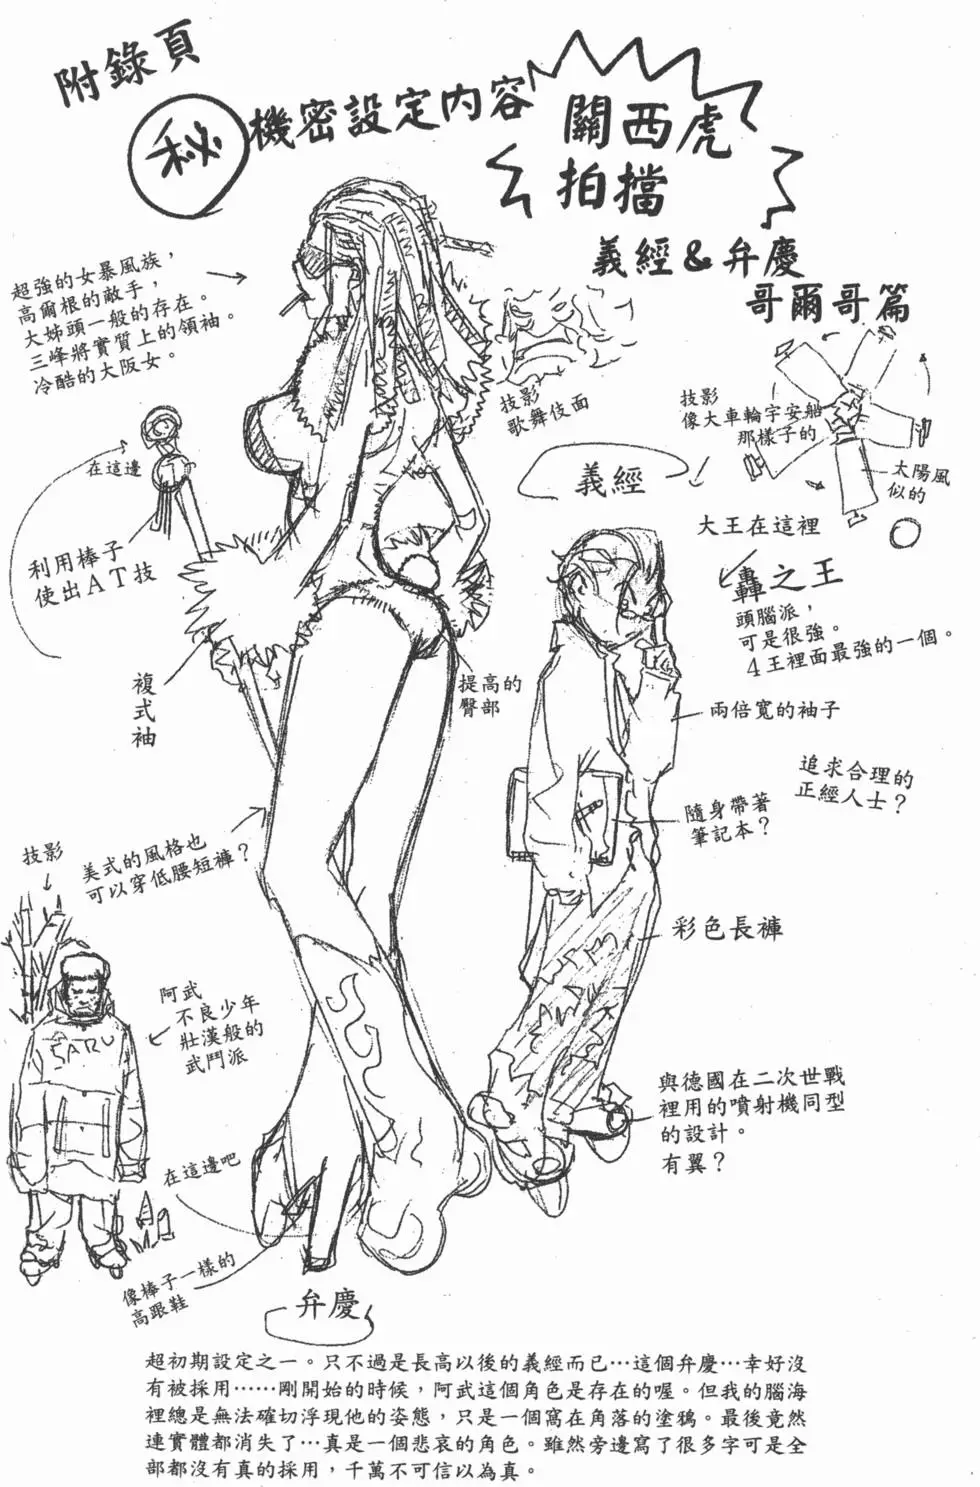 附錄頁
秘
機密設定內容
關西虎
拍擋
義經&弁慶
哥爾哥篇
超強的女暴風族，
高爾根的敵手，
大姊頭一般的存在。
三峰將實質上的領袖。
冷酷的大阪女。
在這邊
利用棒子
使出AT技
複式袖
技影
歌舞伎面
技影
像大車輪宇安船
那樣子的
太陽風
似的
義經
大王在這裡
轟之王
頭腦派，
可是很強。
4王裡面最強的一個。
提高的
臀部
兩倍寬的袖子
追求合理的
正經人士？
隨身帶著
筆記本？
彩色長褲
美式的風格也
可以穿低腰短褲？
技影
SARU
阿武
不良少年
壯漢般的
武鬥派
與德國在二次世戰
裡用的噴射機同型
的設計。
有翼？
在這邊吧
像棒子一樣的
高跟鞋
弁慶
超初期設定之一。只不過是長高以後的義經而已…這個弁慶…幸好沒
有被採用……剛開始的時候，阿武這個角色是存在的喔。但我的腦海
裡總是無法確切浮現他的姿態，只是一個窩在角落的塗鴉。最後竟然
連實體都消失了…真是一個悲哀的角色。雖然旁邊寫了很多字可是全
部都沒有真的採用，千萬不可信以為真。